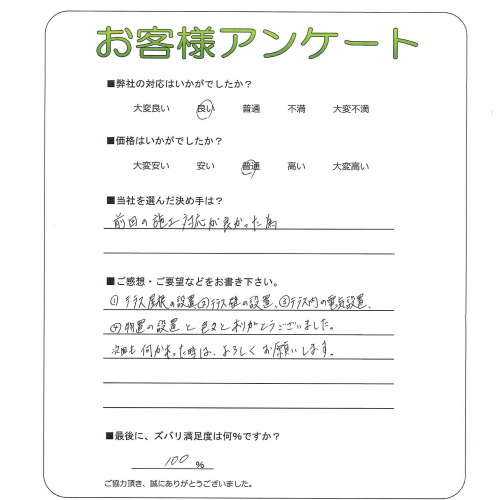 お客様アンケート
■弊社の対応はいかがでしたか？
大変良い　良い　普通　不満　大変不満
■価格はいかがでしたか？
大変安い　安い　普通　高い　大変高い
■当社を選んだ決め手は？
前回の施工対応が良かった為
■ご感想・ご要望などをお書き下さい。
①テラス屋根の設置、②テラス壁の設置、③テラス内の電気設置、
④物置の設置と色々とありがとうございました。
次回も何かあった時は、よろしくお願いします。
■最後に、ズバリ満足度は何％ですか？
100 %
ご協力頂き、誠にありがとうございました。